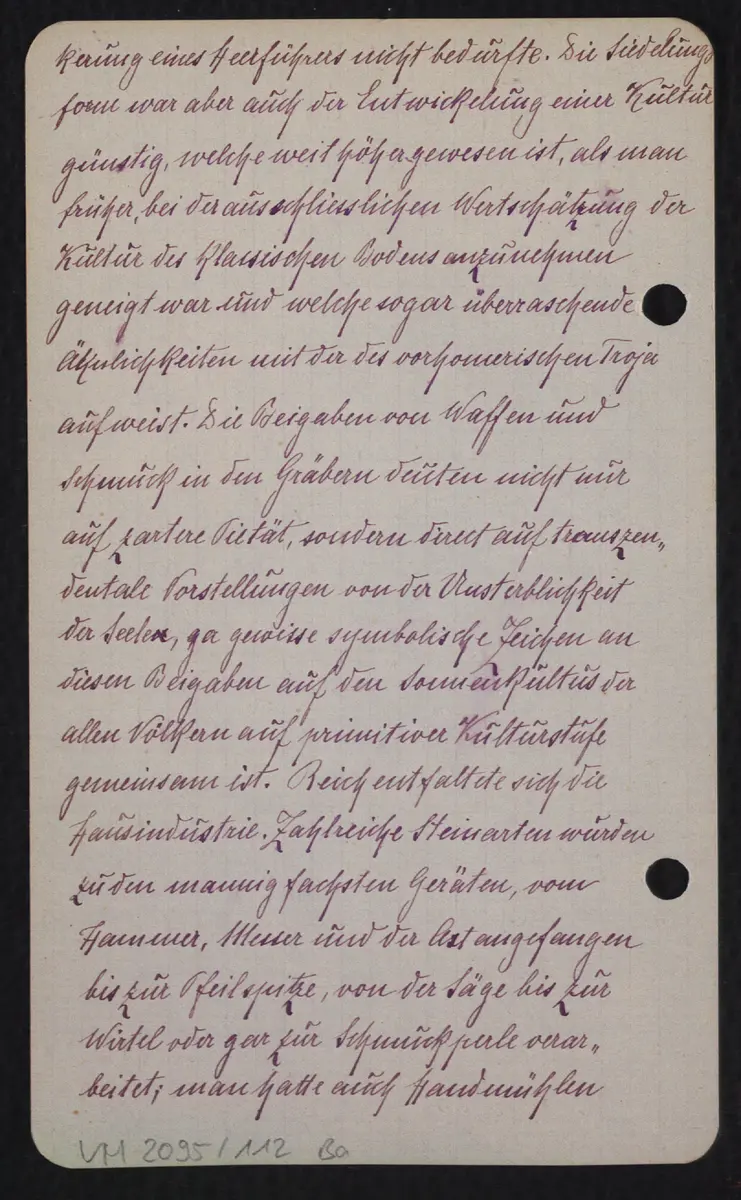 kerung eines Heerführers nicht bedürfte. Die Siedelungs
form war aber auch der Entwickelung einer Kultur
günstig, welche weit höher gewesen ist, als man
früher, bei der ausschliesslichen Wertschätzung der
Kultur des klassischen Bodens anzunehmen
geneigt war und welche sogar überraschende
Ähnlichkeiten mit der des vorhomerischen Troja
aufweist. Die Beigaben von Waffen und
Schmuck in den Gräbern deuten nicht nur
auf zartere Pietät, sondern direct auf transzen„
dentale Vorstellungen von der Unsterblichkeit
der Seelen, ja gewisse symbolische Zeichen an
diesen Beigaben auf den Sonnenkultus der
allen Völkern auf primitiver Kulturstufe
gemeinsam ist. Reich entfaltete sich die
Hausindustrie. Zahlreiche Steinarten wurden
zu den mannigfachsten Geräten, vom
Hammer, Messer und der Axt angefangen
bis zur Pfeilspitze, von der Säge bis zur
Wirtel oder gar zur Schmuckperle verar„
beitet; man hatte auch Handmühlen
VM 2095/112 Ba